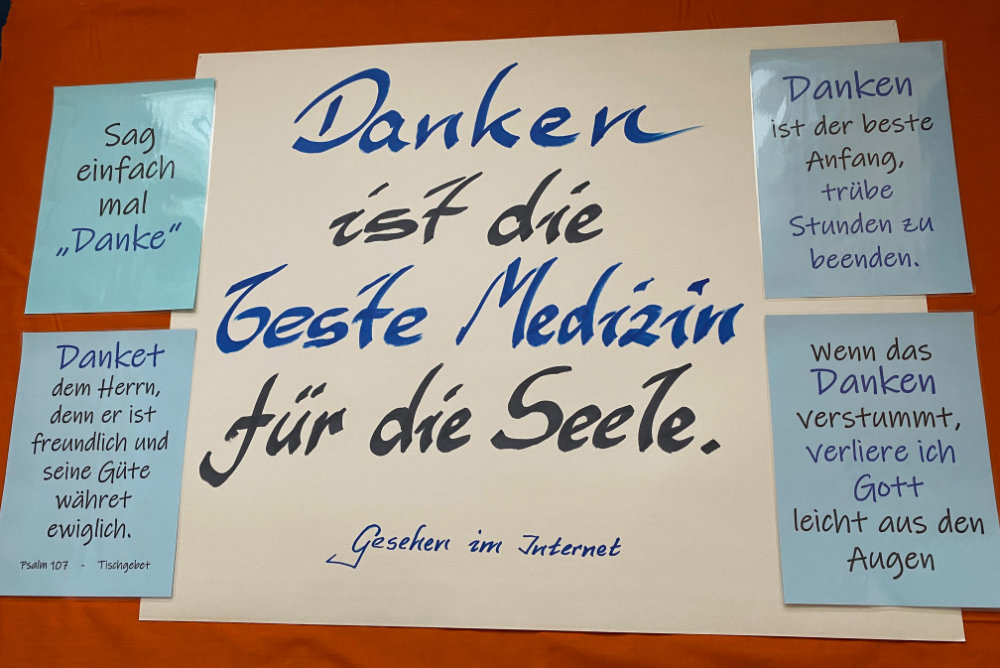 Sag
einfach
mal
„Danke“
Danket
dem Herrn,
denn er ist
freundlich und
seine Güte
währet
ewiglich.
Psalm 107 - Tischgebet
Danken
ist die
beste Medizin
für die Seele.
Gesehen im Internet
Danken
ist der beste
Anfang,
trübe
Stunden zu
beenden.
Wenn das
Danken
verstummt,
verliere ich
Gott
leicht aus den
Augen